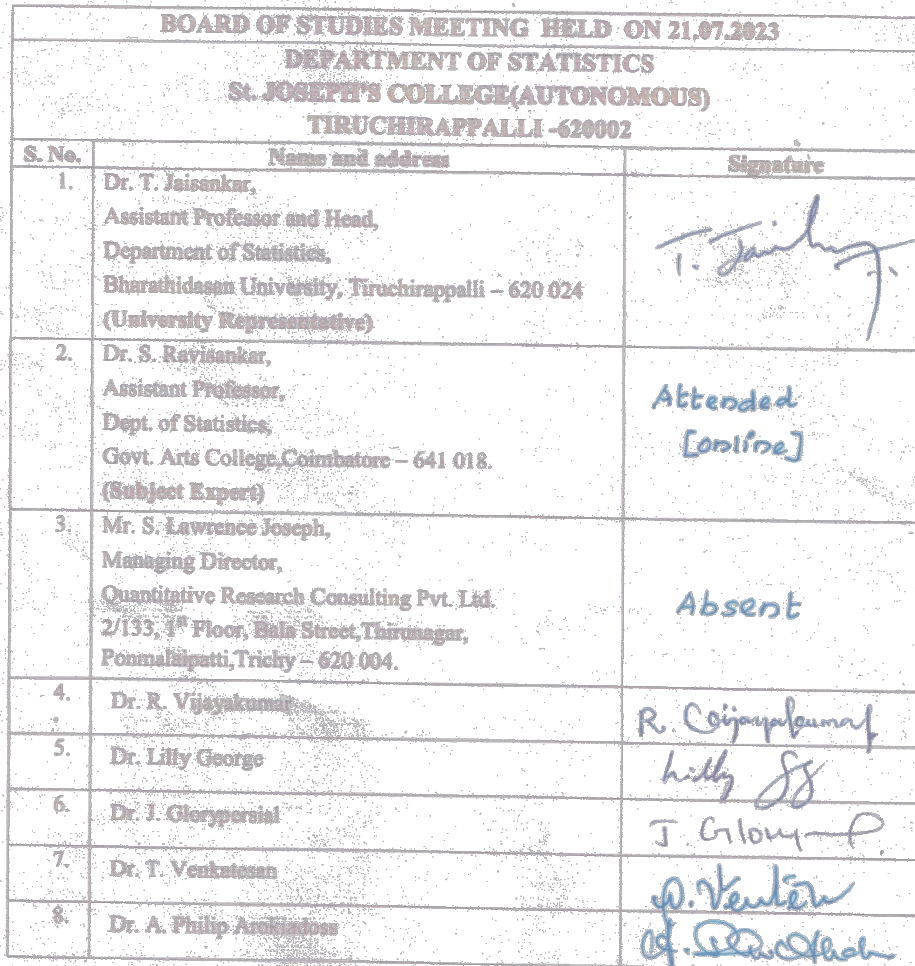 BOARD OF STUDIES MEETING HELD ON 21.07.2023
DEPARTMENT OF STATISTICS
St. JOSEPH'S COLLEGE(AUTONOMOUS)
TIRUCHIRAPPALLI -620002
S. No. Name and address Signature
1. Dr. T. Jaisankar,
Assistant Professor and Head,
Department of Statistics,
Bharathidasan University, Tiruchirappalli – 620 024
(University Representative)
2. Dr. S. Ravisankar,
Assistant Professor,
Dept. of Statistics,
Govt. Arts College,Coimbatore – 641 018.
(Subject Expert)
Attended
[online]
3. Mr. S. Lawrence Joseph,
Managing Director,
Quantitative Research Consulting Pvt. Ltd.
2/133, 1st Floor, Bala Street,Thirunagar,
Ponmalaipatti,Trichy – 620 004.
Absent
4. Dr. R. Vijayakumar R. Vijayakumar
5. Dr. Lilly George Lilly
6. Dr. J. Glorypersial J. Glory
7. Dr. T. Venkatesan
8. Dr. A. Philip Arokiadoss